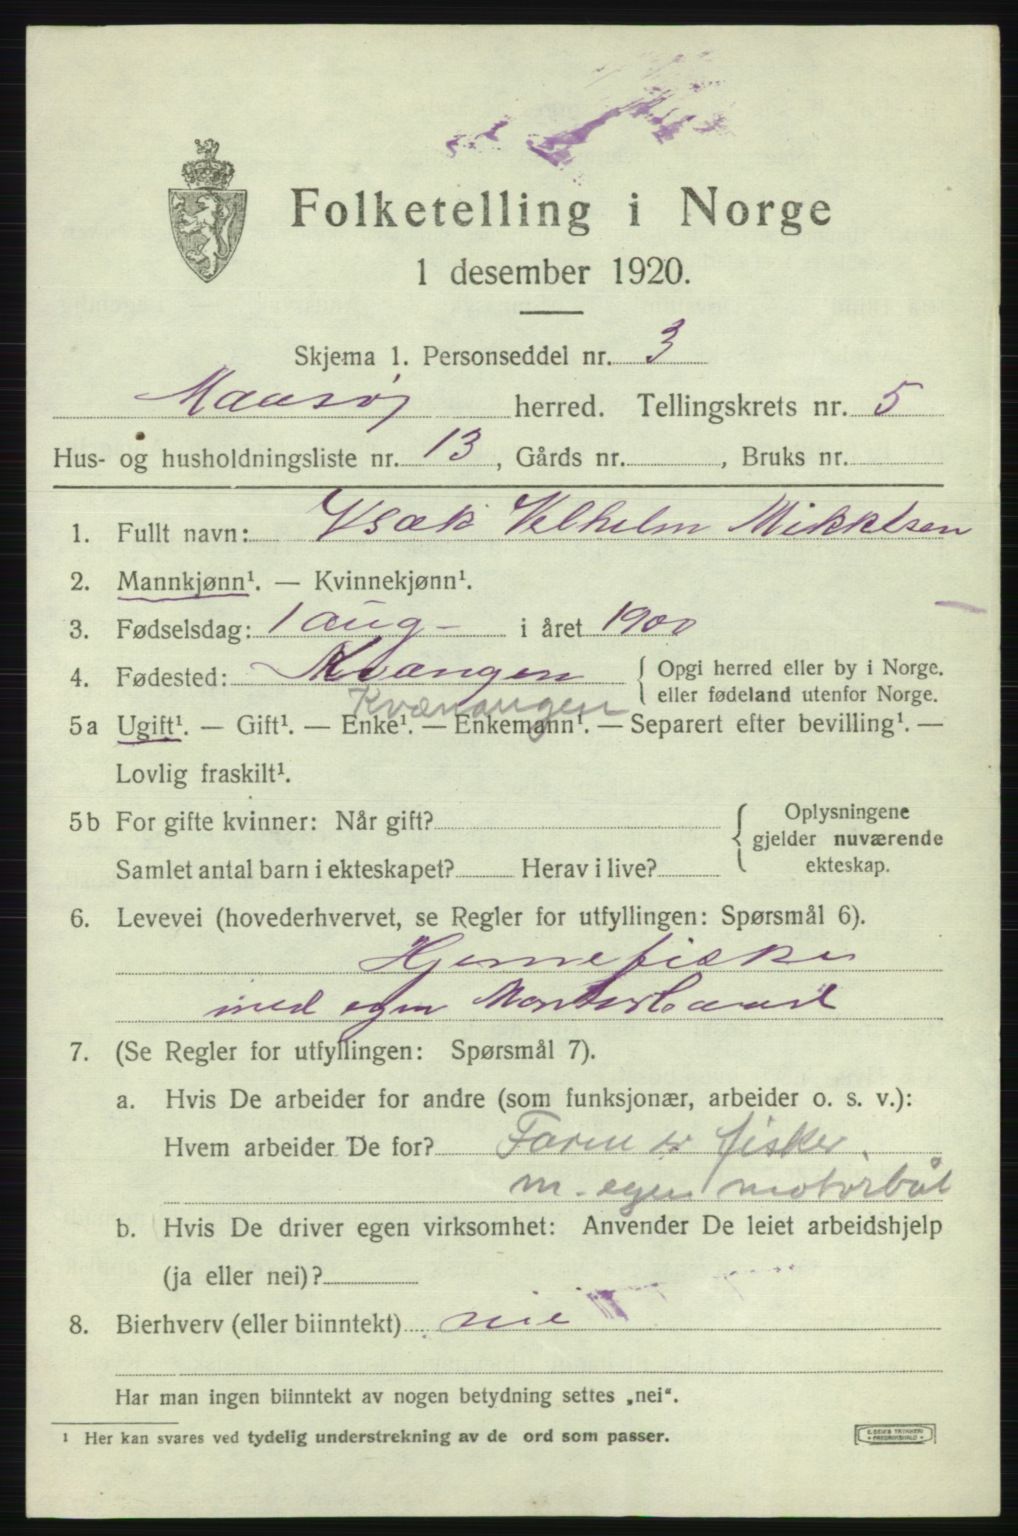 Folketelling i Norge
1 desember 1920.
Skjema 1. Personseddel nr. 3
Maasøj herred. Tellingskrets nr. 5
Hus- og husholdningsliste nr. 13, Gårds nr. , Bruks nr.
1. Fullt navn: Ysæk Velhelm Mikkelsen
2. Mannkjønn¹. — Kvinnekjønn¹.
3. Fødselsdag: 1 aug- i året 1900
4. Fødested: Kvængen { Opgi herred eller by i Norge.
eller fødeland utenfor Norge.
Kvænangen
5a Ugift¹. — Gift¹. — Enke¹. — Enkemann¹. — Separert efter bevilling¹. —
Lovlig fraskilt¹.
5b For gifte kvinner: Når gift? { Oplysningene
gjelder nuværende
ekteskap.
Samlet antal barn i ekteskapet? Herav i live?
6. Levevei (hovederhvervet, se Regler for utfyllingen: Spørsmål 6).
Hjemmefisker
med egen
7. (Se Regler for utfyllingen: Spørsmål 7).
a. Hvis De arbeider for andre (som funksjonær, arbeider o. s. v.):
Hvem arbeider De for? Faren er fisker.
m. egen motorbåt
b. Hvis De driver egen virksomhet: Anvender De leiet arbeidshjelp
(ja eller nei)?
8. Bierhverv (eller biinntekt) nie
Har man ingen biinntekt av nogen betydning settes „nei“.
¹ Her kan svares ved tydelig understrekning av de ord som passer.